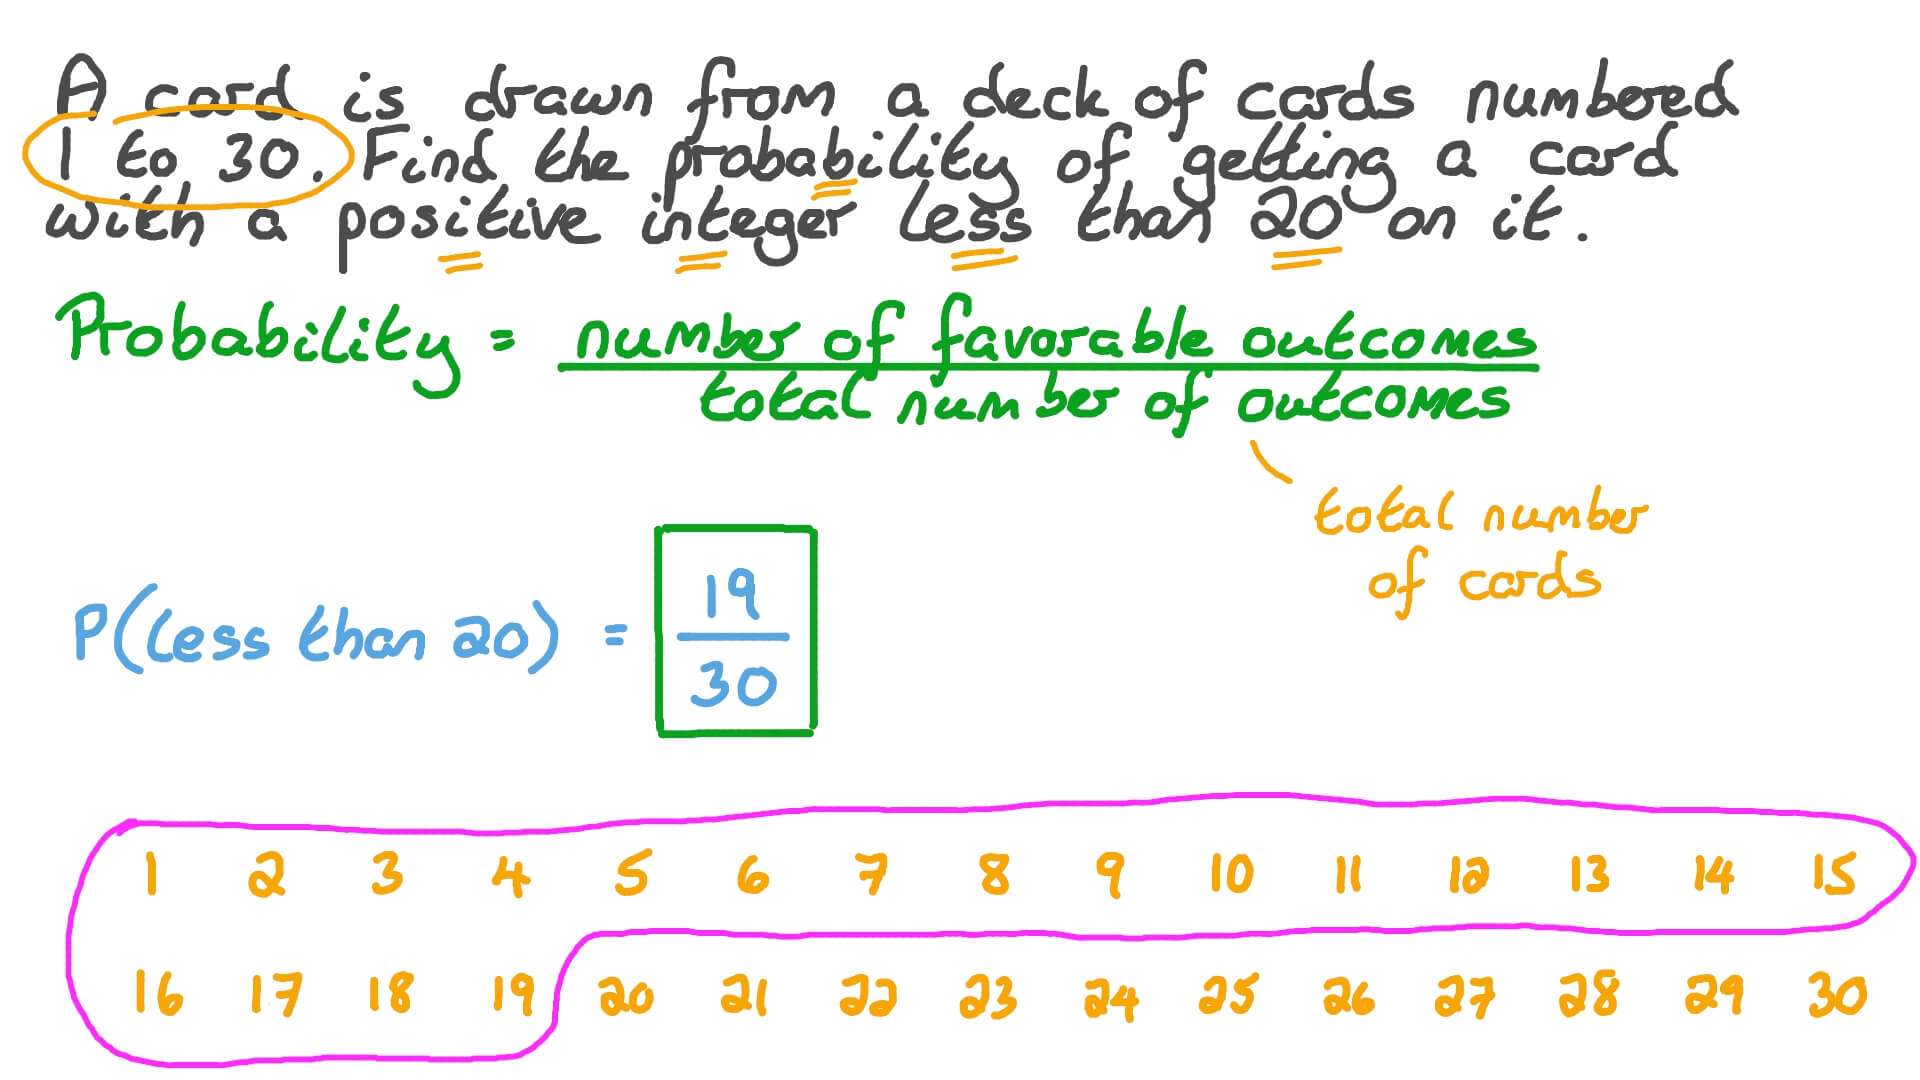 A card is drawn from a deck of cards numbered
1 to 30. Find the probability of getting a card
with a positive integer less than 20 on it.
Probability = number of favorable outcomes
total number of outcomes
total number
of cards
P(less than 20) = 19
30
1 2 3 4 5 6 7 8 9 10 11 12 13 14 15
16 17 18 19 20 21 22 23 24 25 26 27 28 29 30